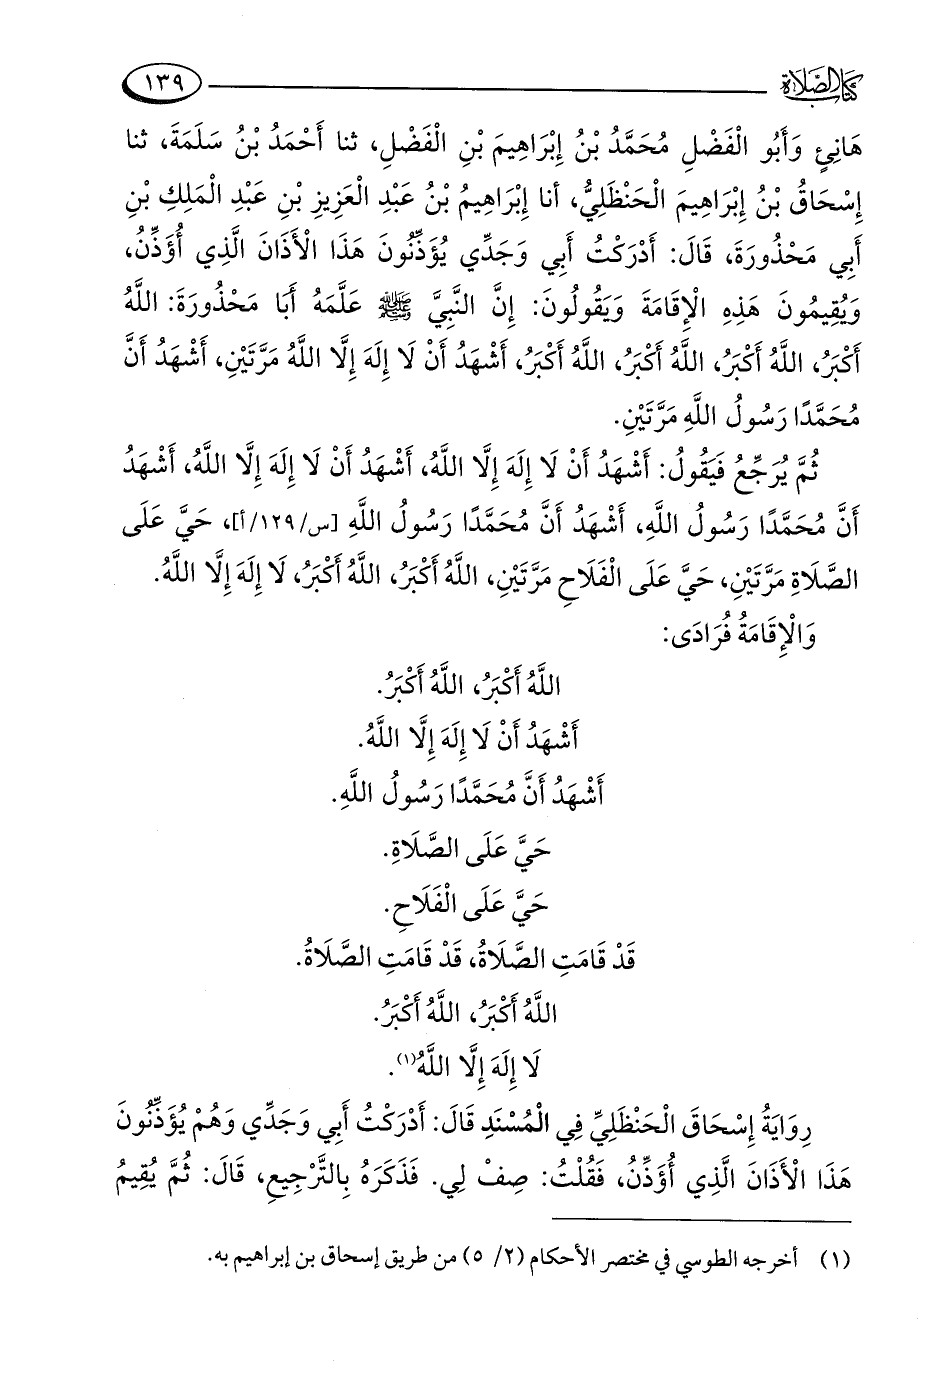 كتاب الصلاة ١٣٩
هَانِئٍ وَأَبُو الْفَضْلِ مُحَمَّدُ بْنُ إِبْرَاهِيمَ بْنِ الْفَضْلِ، ثنا أَحْمَدُ بْنُ سَلَمَةَ، ثنا
إِسْحَاقُ بْنُ إِبْرَاهِيمَ الْحَنْظَلِيُّ، أنا إِبْرَاهِيمُ بْنُ عَبْدِ الْعَزِيزِ بْنِ عَبْدِ الْمَلِكِ بْنِ
أَبِي مَحْذُورَةَ، قَالَ: أَدْرَكْتُ أَبِي وَجَدِّي يُؤَذِّنُونَ هَذَا الْأَذَانَ الَّذِي أُؤَذِّنُ،
وَيُقِيمُونَ هَذِهِ الْإِقَامَةَ وَيَقُولُونَ: إِنَّ النَّبِيَّ ﷺ عَلَّمَهُ أَبَا مَحْذُورَةَ: اللَّهُ
أَكْبَرُ، اللَّهُ أَكْبَرُ، اللَّهُ أَكْبَرُ، اللَّهُ أَكْبَرُ، أَشْهَدُ أَنْ لَا إِلَهَ إِلَّا اللَّهُ مَرَّتَيْنِ، أَشْهَدُ أَنَّ
مُحَمَّدًا رَسُولُ اللَّهِ مَرَّتَيْنِ.
ثُمَّ يُرَجِّعُ فَيَقُولُ: أَشْهَدُ أَنْ لَا إِلَهَ إِلَّا اللَّهُ، أَشْهَدُ أَنْ لَا إِلَهَ إِلَّا اللَّهُ، أَشْهَدُ
أَنَّ مُحَمَّدًا رَسُولُ اللَّهِ، أَشْهَدُ أَنَّ مُحَمَّدًا رَسُولُ اللَّهِ [س/١٢٩/أ]، حَيَّ عَلَى
الصَّلَاةِ مَرَّتَيْنِ، حَيَّ عَلَى الْفَلَاحِ مَرَّتَيْنِ، اللَّهُ أَكْبَرُ، اللَّهُ أَكْبَرُ، لَا إِلَهَ إِلَّا اللَّهُ.
وَالْإِقَامَةُ فُرَادَى:
اللَّهُ أَكْبَرُ، اللَّهُ أَكْبَرُ.
أَشْهَدُ أَنْ لَا إِلَهَ إِلَّا اللَّهُ.
أَشْهَدُ أَنَّ مُحَمَّدًا رَسُولُ اللَّهِ.
حَيَّ عَلَى الصَّلَاةِ.
حَيَّ عَلَى الْفَلَاحِ.
قَدْ قَامَتِ الصَّلَاةُ، قَدْ قَامَتِ الصَّلَاةُ.
اللَّهُ أَكْبَرُ، اللَّهُ أَكْبَرُ.
لَا إِلَهَ إِلَّا اللَّهُ(١).
رِوَايَةُ إِسْحَاقَ الْحَنْظَلِيِّ فِي الْمُسْنَدِ قَالَ: أَدْرَكْتُ أَبِي وَجَدِّي وَهُمْ يُؤَذِّنُونَ
هَذَا الْأَذَانَ الَّذِي أُؤَذِّنُ، فَقُلْتُ: صِفْ لِي. فَذَكَرَهُ بِالتَّرْجِيعِ، قَالَ: ثُمَّ يُقِيمُ
(١) أخرجه الطوسي في مختصر الأحكام (٢/ ٥) من طريق إسحاق بن إبراهيم به.